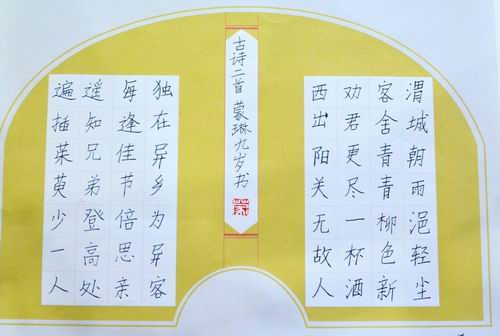 渭城朝雨浥轻尘
客舍青青柳色新
劝君更尽一杯酒
西出阳关无故人
古诗二首 蒙琳九岁书
蒙
独在异乡为异客
每逢佳节倍思亲
遥知兄弟登高处
遍插茱萸少一人